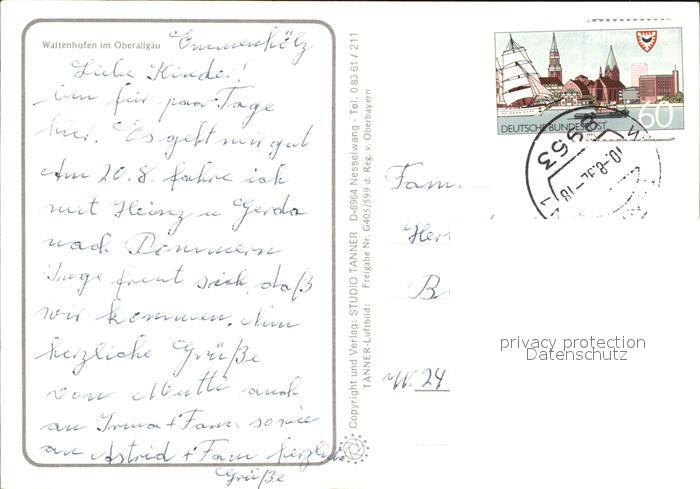 Waltenhofen im Oberallgäu
Emmerhölz
Liebe Kinder!
bin für paar Tage
hier. Es geht mir gut
Am 20.8. fahre ich
mit Heinz u Gerda
nach Pommern
Inge freut sich, daß
wir kommen. Nun
herzliche Grüße
von Mutti auch
an Irma + Fam. sowie
an Astrid + Fam herzliche
Grüße
Copyright und Verlag: STUDIO TANNER D-8964 Nesselwang - Tel. 0 83 61 / 211
TANNER-Luftbild: Freigabe Nr. G405/599 d. Reg. v. Oberbayern
750 Jahre Kiel
60
DEUTSCHE BUNDESPOST
10.-8.92-18
Fam
Her
B
W. 24
privacy protection
Datenschutz